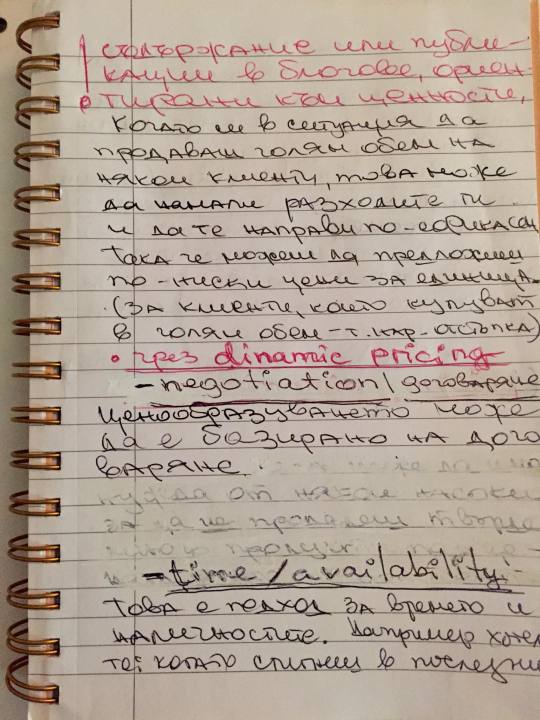 съдържание или публи-
кации в блогове, ориен-
тирани към ценности,
когато си в ситуация да
продаваш голям обем на
някои клиенти, това може
да намали разходите ти
и да те направи по-ефикасен
така че можеш да предложиш
по-ниски цени за единица.
(за клиенти, които купуват
в голям обем - т. нар. отстъпка)
• чрез dinamic pricing
- negotiation / договаряне
ценообразуването може
да е базирано на дого
варяне.
- time / availability:
това е подход за времето и
наличностите. Например хоте
те: когато стигнеш в последни